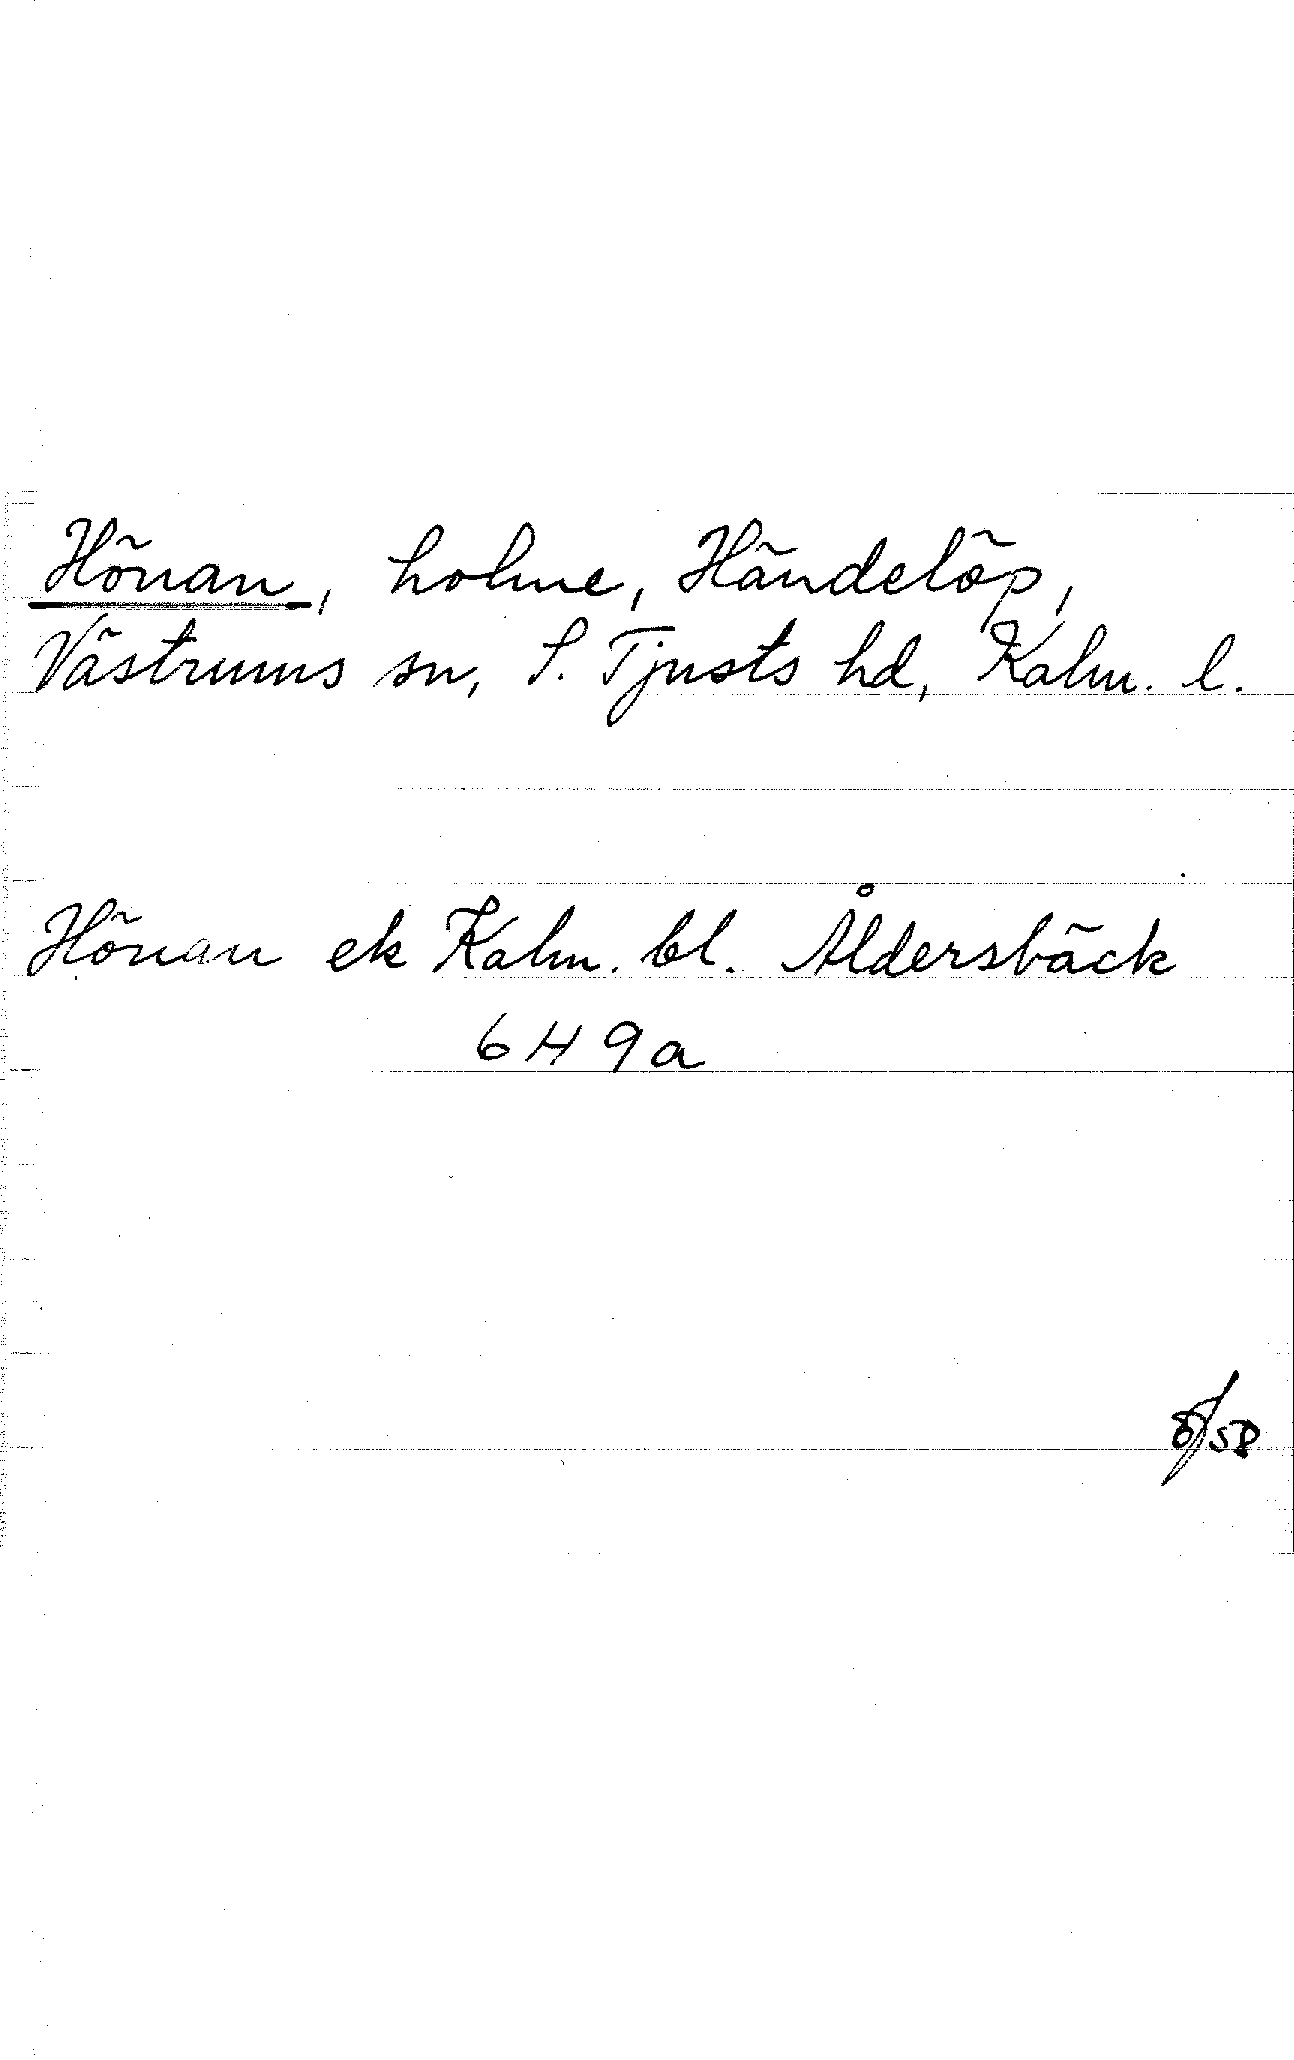 Hönan, holme, Händelöp,
Västrums sn, S. Tjusts hd, Kalm. l.
Hönan ek Kalm. bl. Åldersbäck
6H9a
58